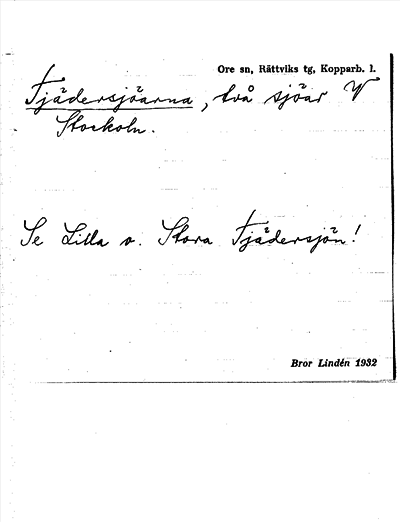 Ore sn, Rättviks tg, Kopparb. l.
Fjädersjöarna, två sjöar V
Stockoln.
Se Lilla o. Stora Fjädersjön!
Bror Lindén 1932